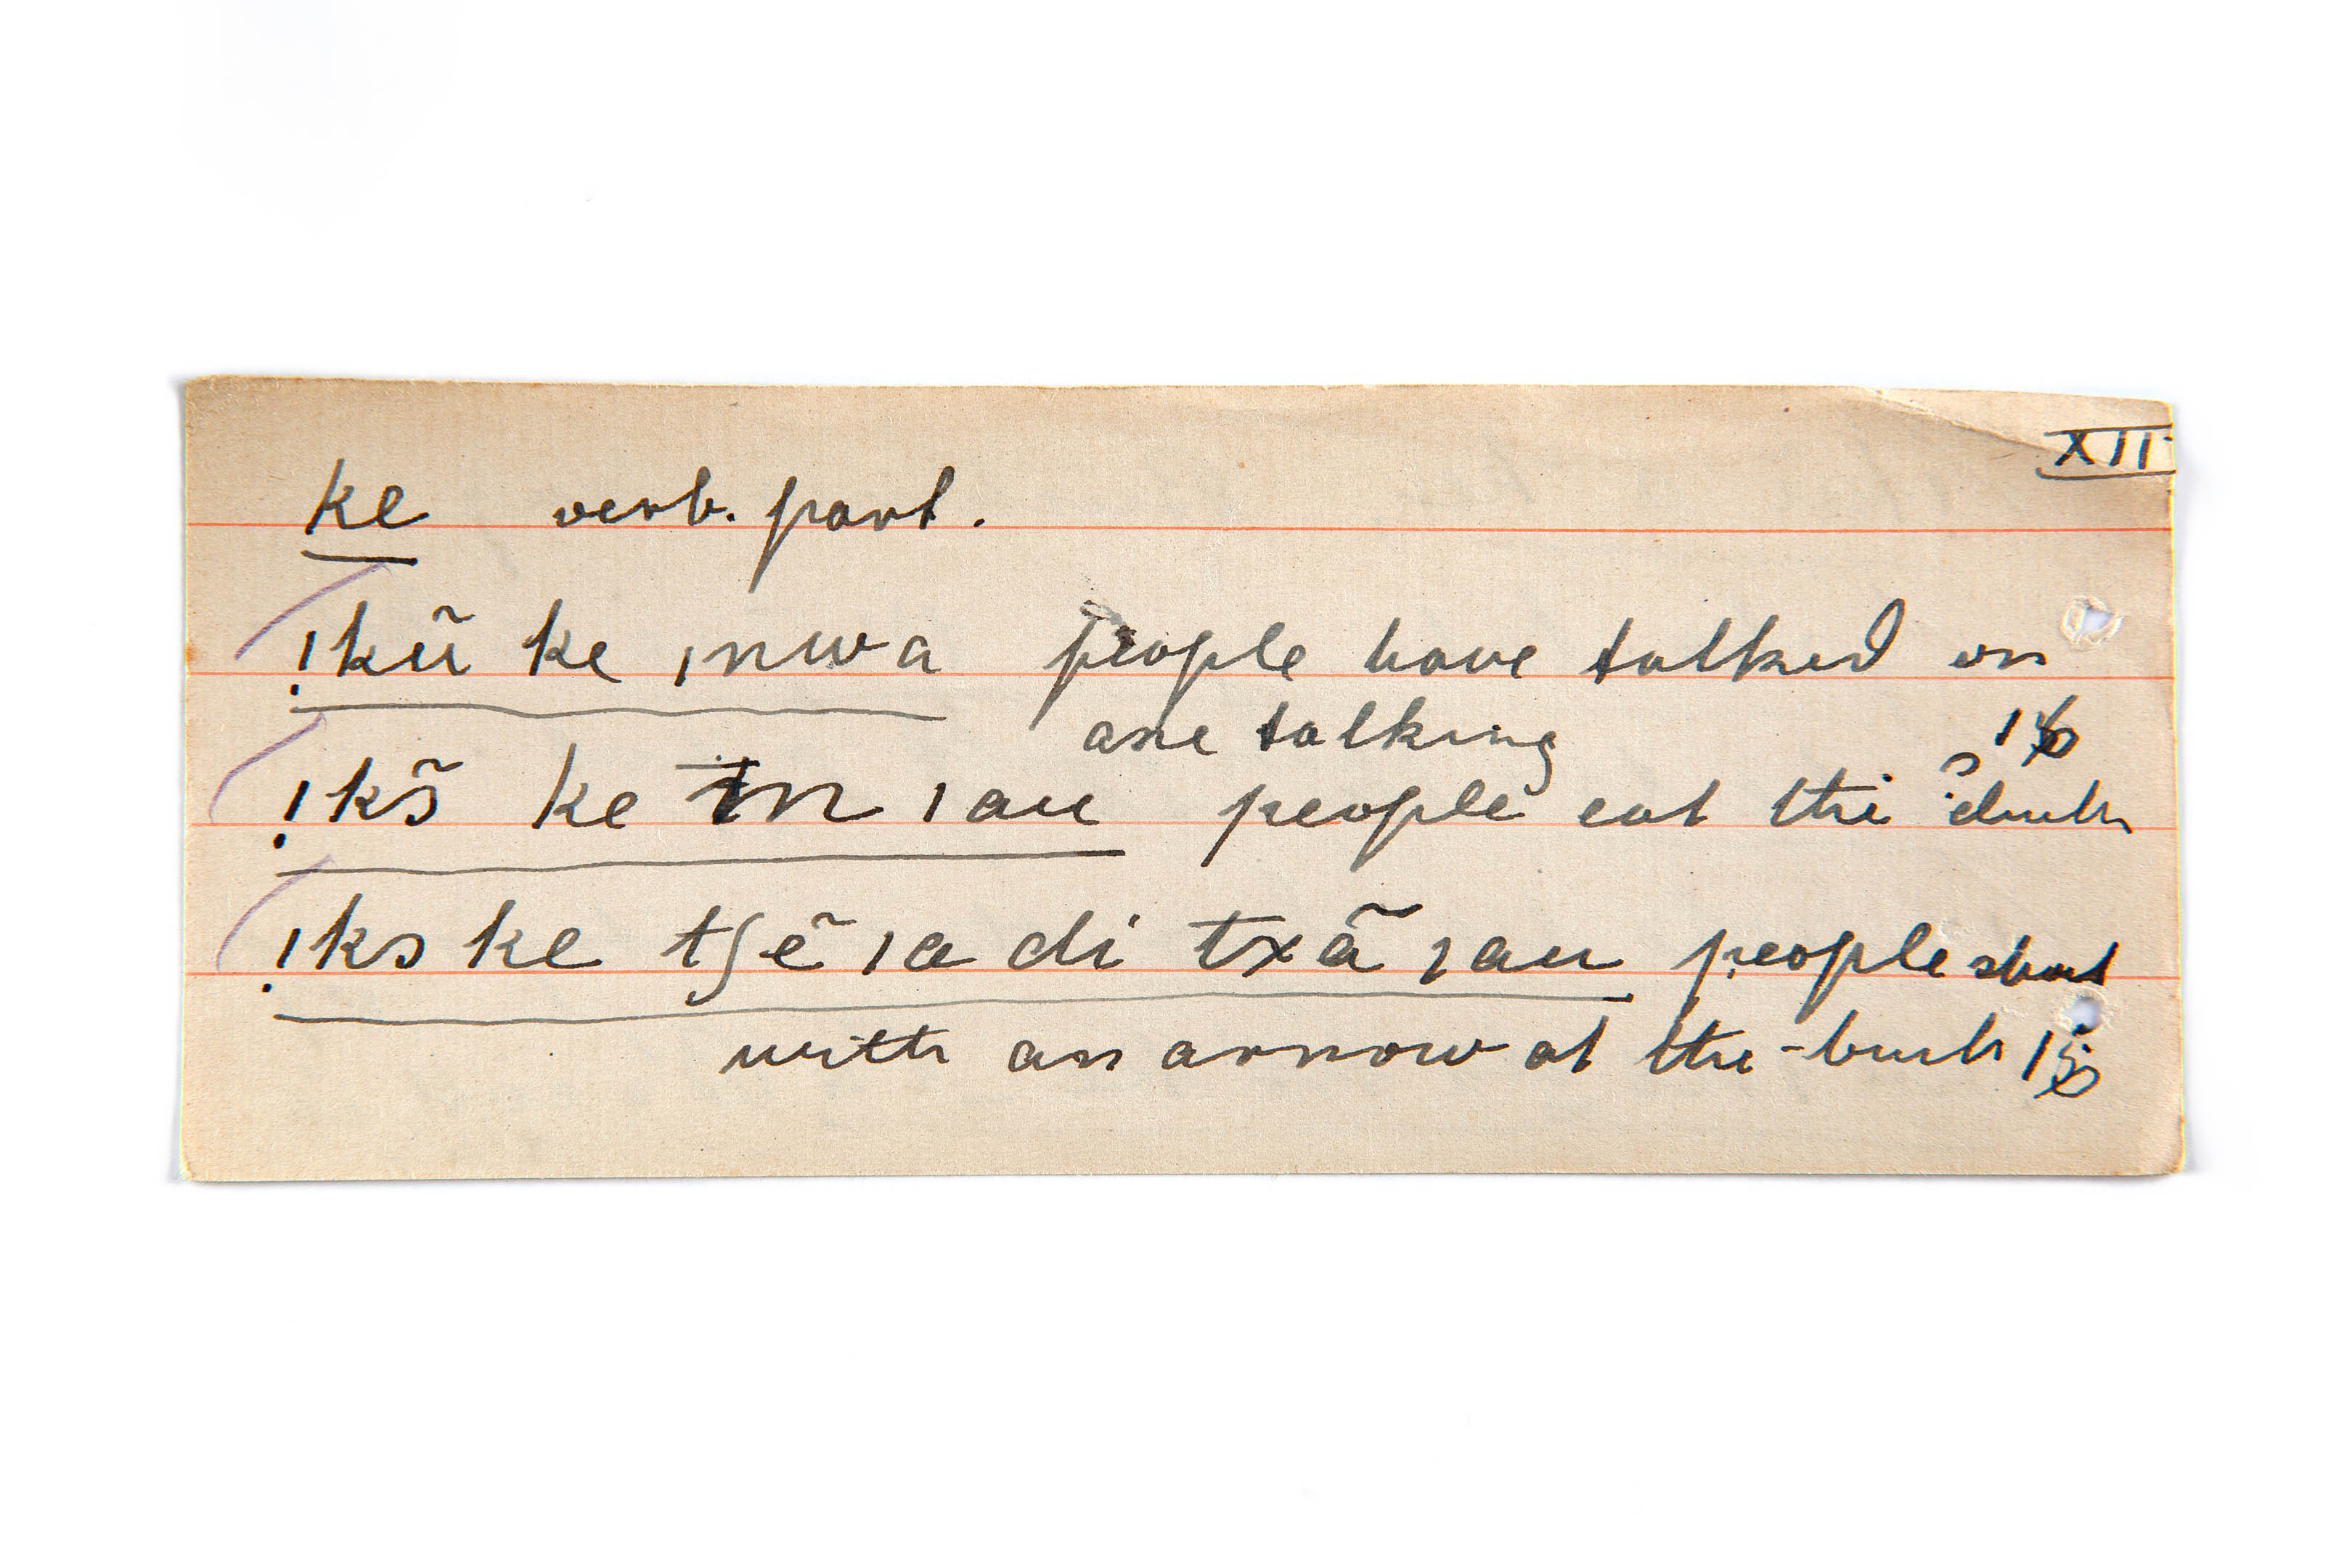 XII
ke verb. part.
!kũ ke ǀnwa people have talked or
are talking
!kɔ̃ ke ǀau people eat the
!kɔ ke tʃẽ ǀa di txã ǀau people shoot
with an arrow at the bush